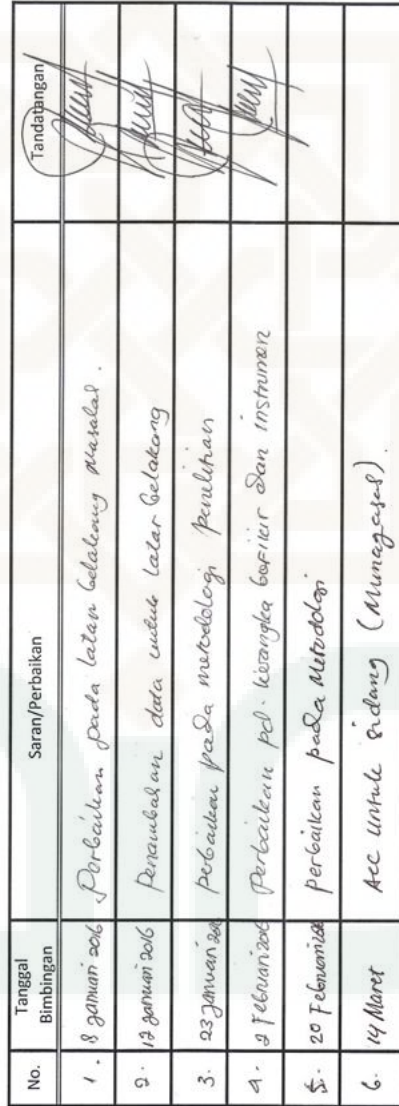 No. Tanggal Bimbingan Saran/Perbaikan Tandatangan
1. 8 januari 2016 Perbaikan pada latar belakang masalah.
2. 12 januari 2016 Penambahan data untuk latar belakang
3. 23 januari 201 perbaikan pada metodologi penelitian
4. 2 Februari 2016 Perbaikan pd. kerangka berikir dan instrumen
5. 20 Februari 201 perbaikan pada Metodologi
6. 14 Maret Acc untuk sidang (Munaqasus)